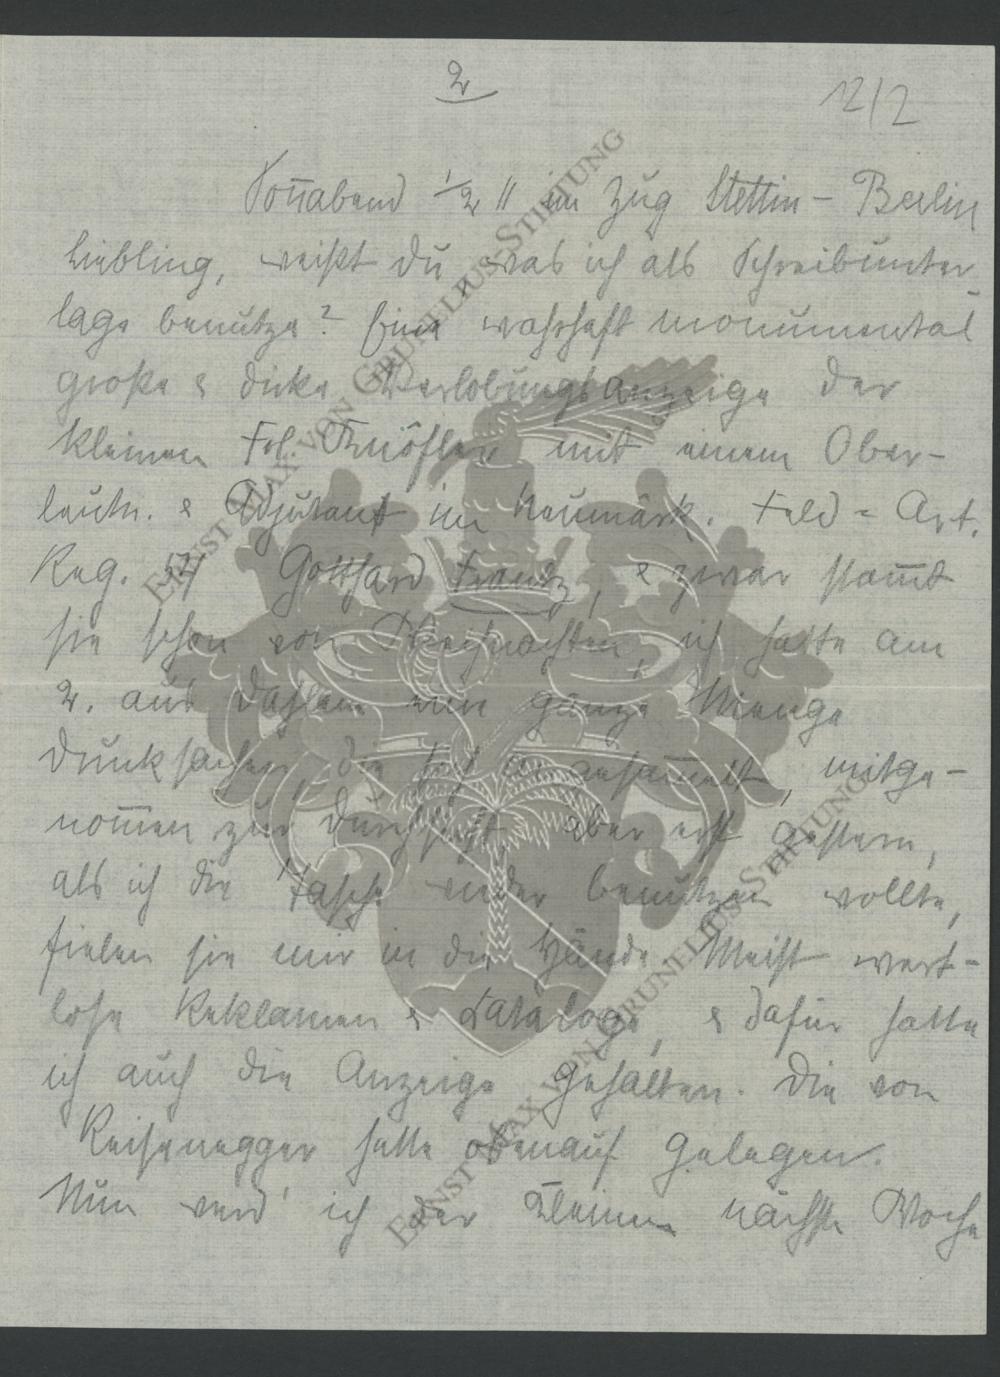 2
12/2
Sonnabend ½ 11 im Zug Stettin - Berlin
Liebling, weißt du was ich als Schreibunter-
lage benutze? Eine wahrhaft monumental
große & dicke Verlobungsanzeige der
kleinen Frl. Knöfler mit einem Ober-
leutn. & Adjutant im Neumärk. Feld = Art.
Reg. 54 Gotthard Frantz, & zwar stammt
sie schon von Weihnachten, ich hatte am
2. aus Dahlem eine ganze Menge
Drucksachen, die sich da ansammelt, mitge-
nommen zur Durchsicht aber erst gestern,
als ich die Tasche wieder benutzen wollte,
fielen sie mir in die Hände. Meist wert-
lose Reklamen & Kataloge, & dafür hatte
ich auch die Anzeige gehalten. Die von
Reisenegger hatte obenauf gelegen.
Nun werd' ich der Kleinen nächste Woche
ERNST MAX VON GRUNELIUS-STIFTUNG
ERNST MAX VON GRUNELIUS-STIFTUNG